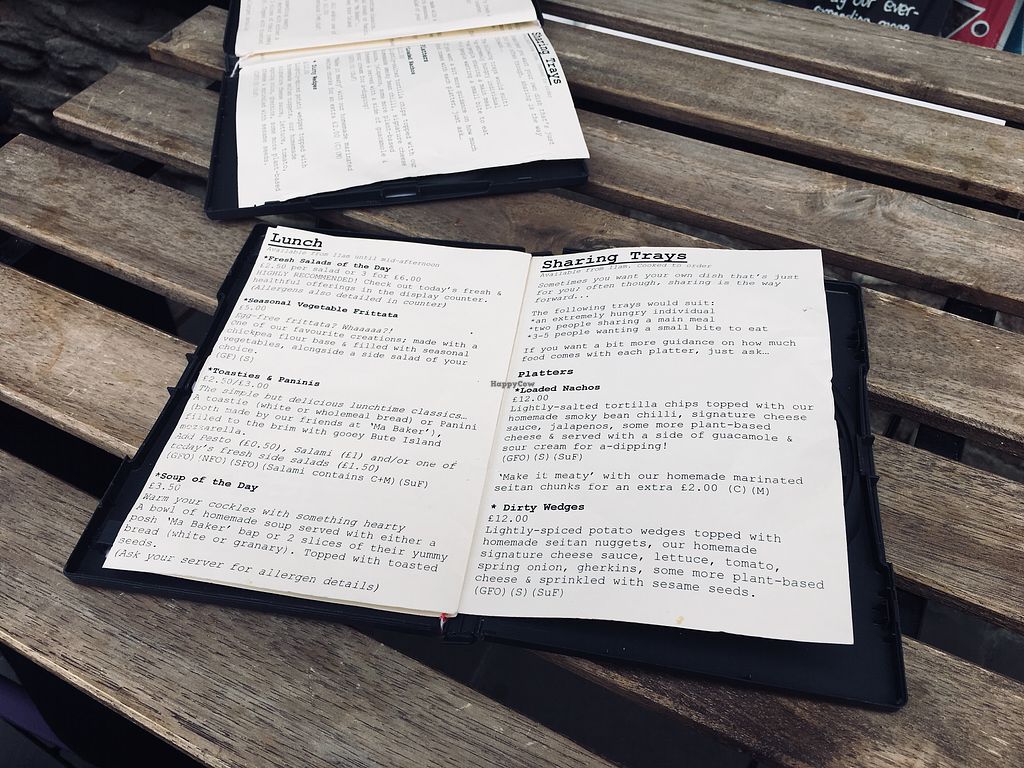 Lunch
Available from 11am until mid-afternoon
*Fresh Salads of the Day
£2.50 per salad or 3 for £6.00
HIGHLY RECOMMENDED! Check out today's fresh &
healthful offerings in the display counter.
(Allergens also detailed in counter)
*Seasonal Vegetable Frittata
£5.00
Egg-free frittata? Whaaaaa?!
One of our favourite creations; made with a
chickpea flour base & filled with seasonal
vegetables, alongside a side salad of your
choice.
(GF)(S)
*Toasties & Paninis
£2.50/£3.00
The simple but delicious lunchtime classics…
A toastie (white or wholemeal bread) or Panini
(both made by our friends at 'Ma Baker'),
filled to the brim with gooey Bute Island
mozzarella.
Add Pesto (£0.50), Salami (£1) and/or one of
today's fresh side salads (£1.50)
(GFO)(NFO)(SFO)(Salami contains C+M)(SuF)
*Soup of the Day
£3.50
Warm your cockles with something hearty
A bowl of homemade soup served with either a
posh 'Ma Baker' bap or 2 slices of their yummy
bread (white or granary). Topped with toasted
seeds.
(Ask your server for allergen details)
Sharing Trays
Available from 11am. Cooked to order
Sometimes you want your own dish that's just
for you; often though, sharing is the way
forward...
The following trays would suit:
*an extremely hungry individual
*two people sharing a main meal
*3-5 people wanting a small bite to eat
If you want a bit more guidance on how much
food comes with each platter, just ask…
Platters
*Loaded Nachos
£12.00
Lightly-salted tortilla chips topped with our
homemade smoky bean chilli, signature cheese
sauce, jalapenos, some more plant-based
cheese & served with a side of guacamole &
sour cream for a-dipping!
(GFO)(S)(SuF)
'Make it meaty' with our homemade marinated
seitan chunks for an extra £2.00 (C)(M)
* Dirty Wedges
£12.00
Lightly-spiced potato wedges topped with
homemade seitan nuggets, our homemade
signature cheese sauce, lettuce, tomato,
spring onion, gherkins, some more plant-based
cheese & sprinkled with sesame seeds.
(GFO)(S)(SuF)
Sharing Trays
Platters
*Loaded Nachos
* Dirty Wedges
our ever-
HappyCow